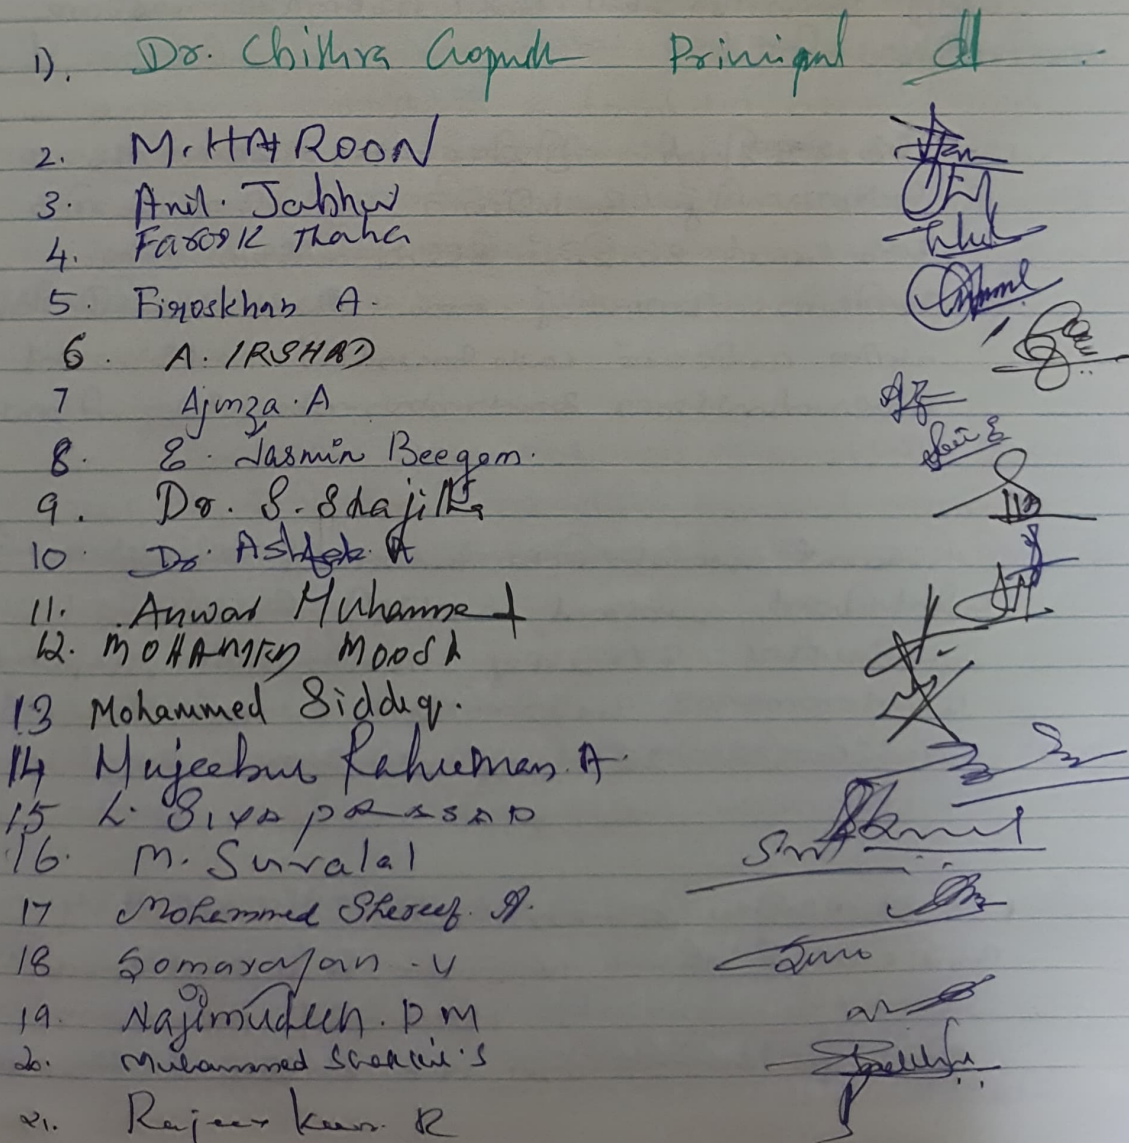 1). Dr. Chithra Gopnath Prinnipal
2. M. HAROON
3. Anil. Jabhar
4. Farook Thaha
5. Firoskhan A.
6. A. IRSHAD
7 Ajmza. A
8. E. Jasmin Beegom.
9. Dr. S. Shajitha
10. Dr. Ashok. A
11. Anwar Muhammed
12. MOHAMMED MOOSA
13 Mohammed Siddiq.
14 Mujeebur Rahuman. A.
15 L. SIVA PRASSAD
16. M. Suvralal
17 Mohammed Shereef. A.
18 Somarajan. V
19. Najimudeen. P M
20. Muhammed S
21. Rajeev R